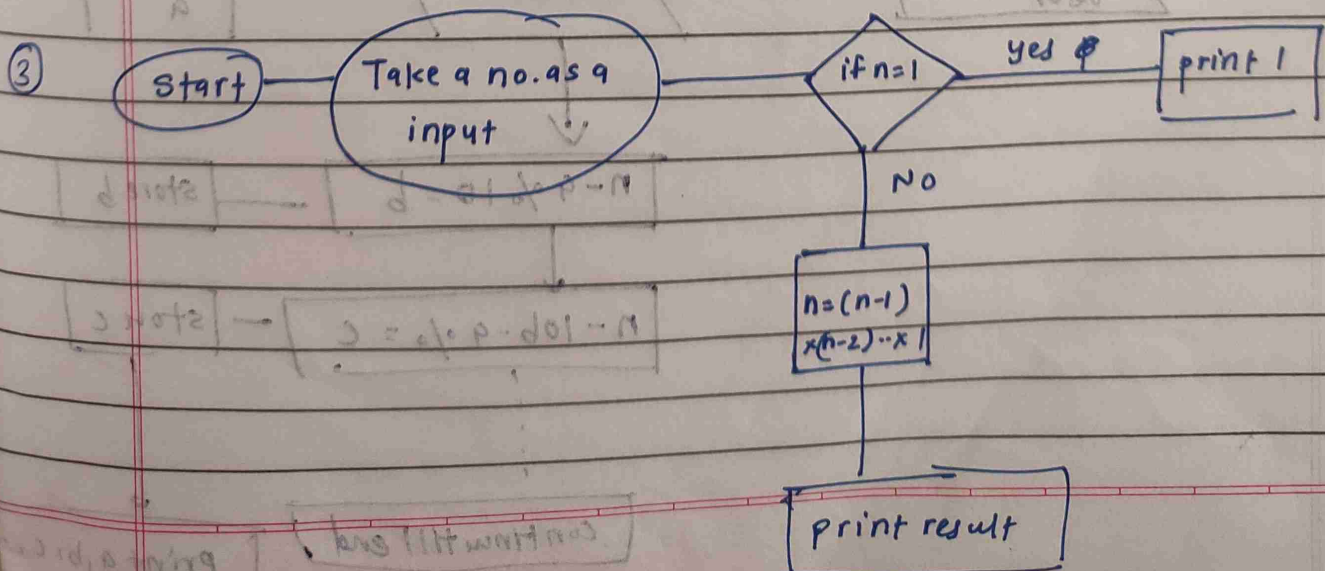 ③
Start
Take a no. as a
input
if n=1
yes
print 1
NO
n=(n-1)
x(n-2)..x 1
print result